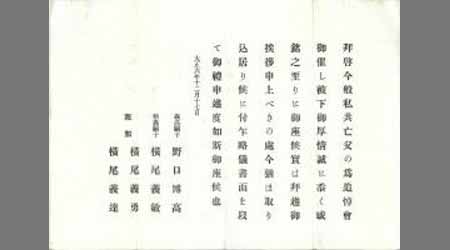 拜啓今般私共亡父の爲追悼會
御催し被下御厚情誠に忝く感
銘之至りに御座候實は拜趨御
挨拶申上べきの處今猶ほ取り
込居り候に付乍略儀書面を以
て御禮申述度如斯御座候也
大正六年十二月十七日
野口博高
横尾義敏
親類
横尾義勇
横尾義達